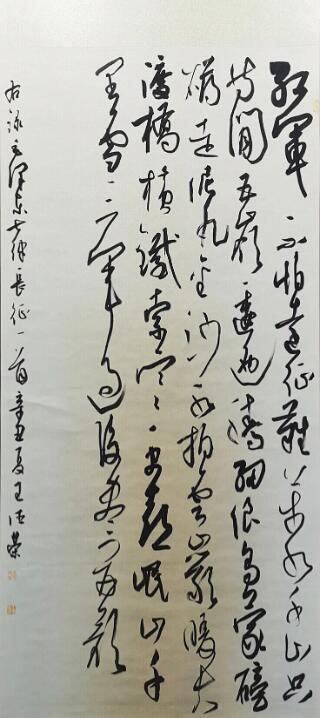 紅軍不怕遠征難万水千山只
等閒五嶺逶迤騰細浪烏蒙磅
礴走泥丸金沙水拍雲崖暖大
渡橋橫鐵索寒更喜岷山千
里雪三軍過後盡開顏
右錄毛澤東七律長征一首辛丑夏王德榮